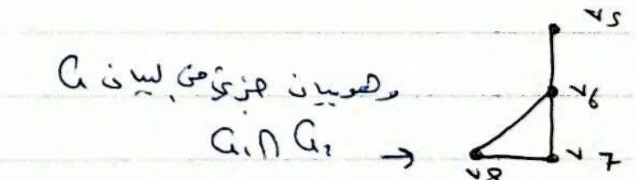 وهو بيان جزئي من لبيان G
G₁ ∩ G₂ →
v5
v6
v8
v7